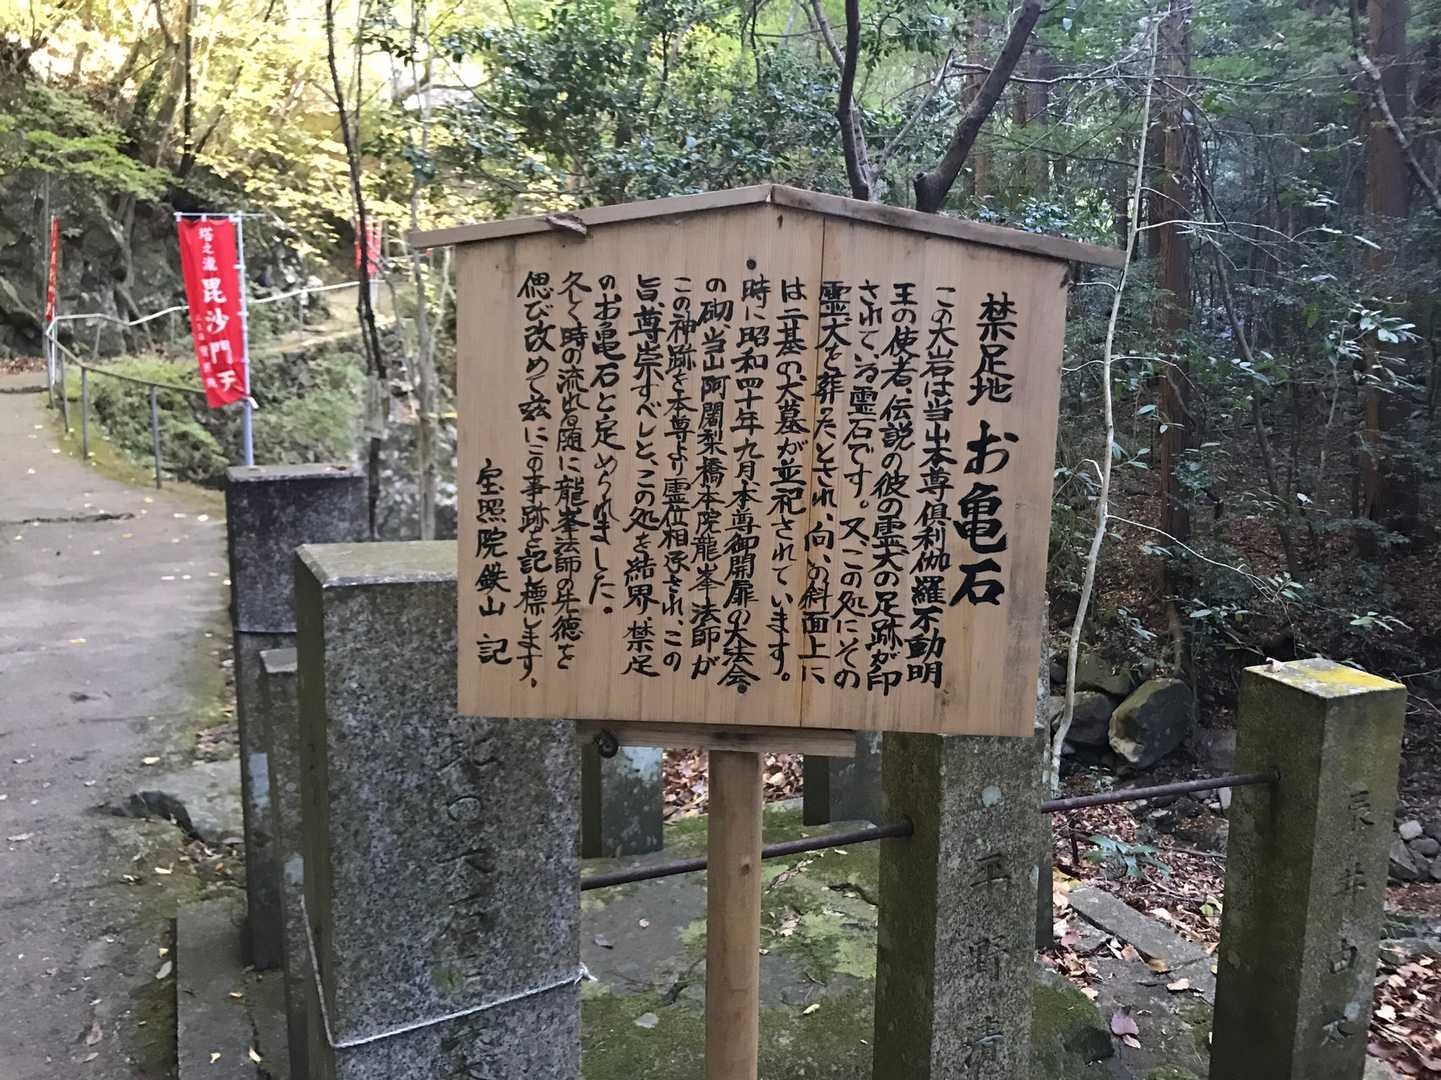 禁足地 お亀石
この大岩は当山本尊倶利伽羅不動明
王の使者、伝説の彼の霊犬の足跡が印
されている霊石です。又、この処にその
霊犬を葬ったとされ、向、の斜面上に
は二基の犬墓が並祀されています。
時に昭和四十年九月、本尊御開扉の大法会、
の砌、当山阿闍梨橋本院龍峯法師が
この神跡を本尊より霊位相承され、この
旨、尊崇すべしと、この処を結界、禁足
のお亀石と定められました。
久しく時の流れる随に龍峯法師の先徳を
偲び改めて茲にこの事跡を記標します。
宝照院鉄山 記
塔之滝 毘沙門天
平 清
辰井由